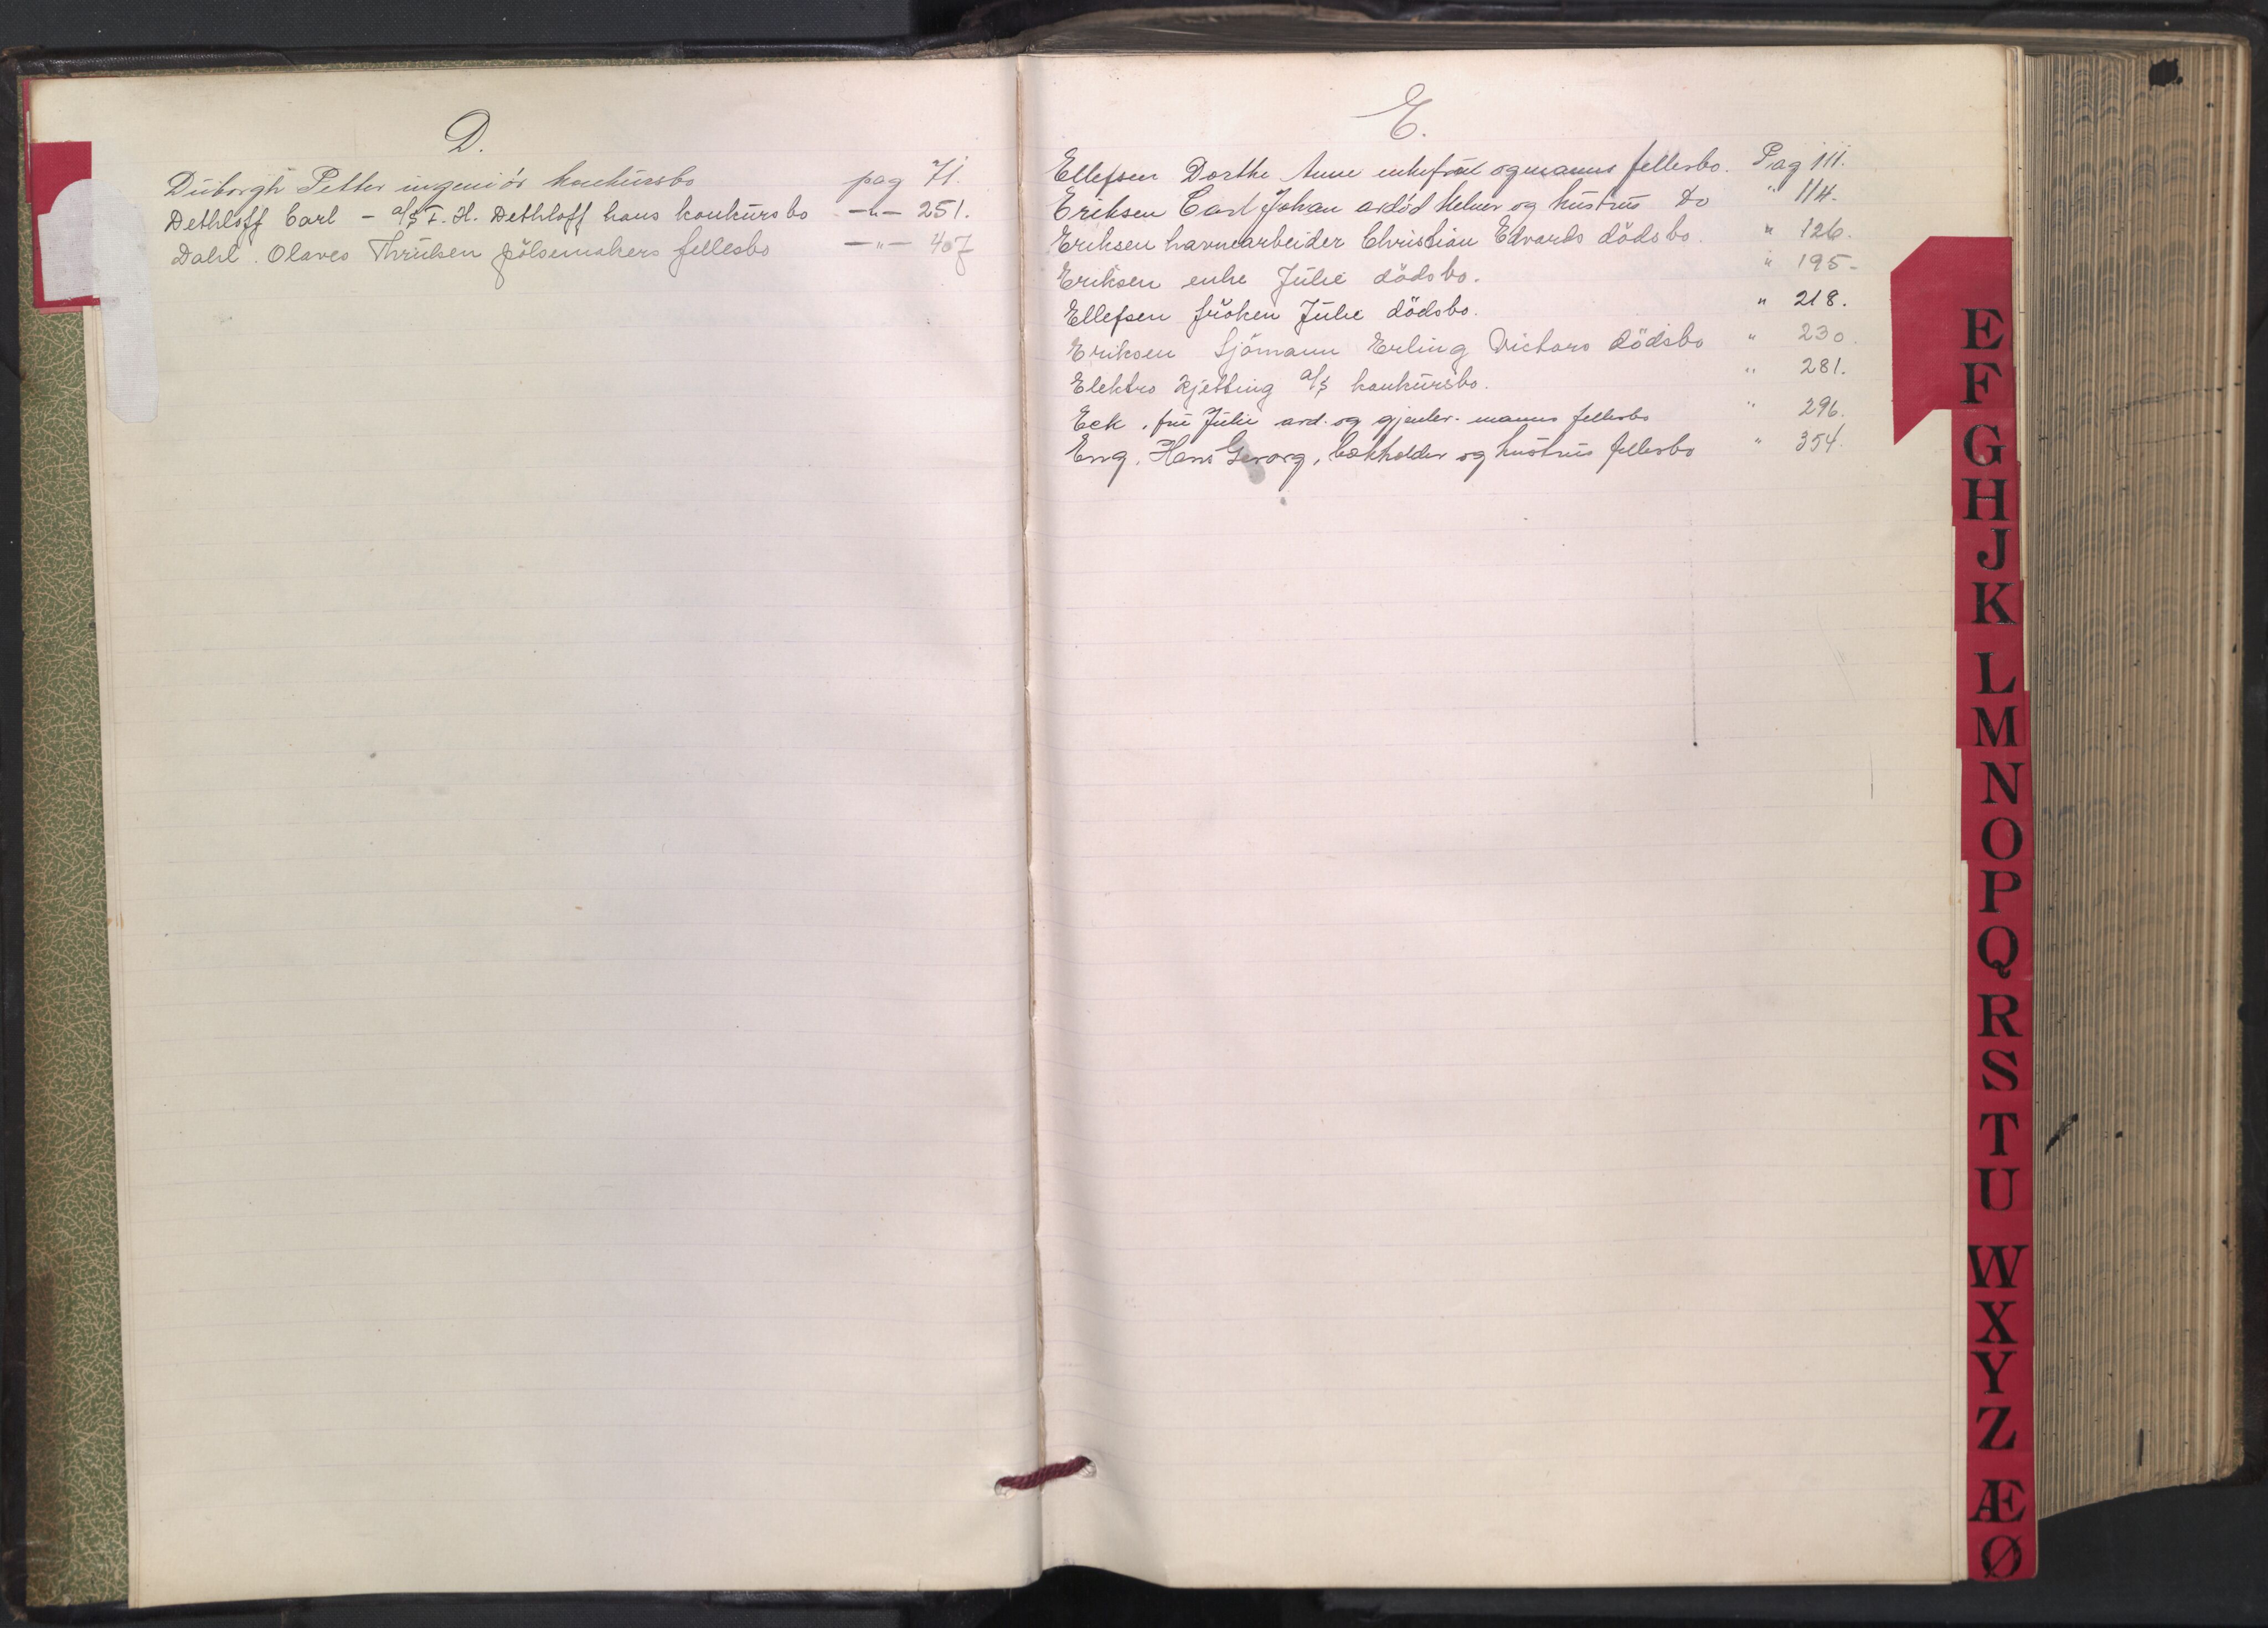 D.
Duborgh Petter ingeniör konkursbo pag 71.
Dethloff Carl - a/s F. H. Dethloff hans konkursbo -"- 251.
Dahl. Olaves Thrulsen pölsemakers fellesbo -"- 407
E.
Ellefsen Dorthe Anne enkefru og manns fellesbo. Pag 111.
Eriksen Carl Johan avdöd og hustrus Do " 114.
Eriksen havnearbeider Christian Edvards dödsbo. " 126.
Eriksen enke Julie dödsbo. " 195-
Ellefsen fröken Julie dödsbo. " 218.
Eriksen Sjömann Erling Victors dödsbo " 230.
Elektro Kjetting a/s konkursbo. " 281.
Eck, fru Julie avd. og gjenlev. manns fellesbo " 296.
Eng, Hans Georg, bokholder og hustrus fellesbo " 354.
E
F
G
H
J
K
L
M
N
O
P
Q
R
S
T
U
W
X
Y
Z
Æ
Ø